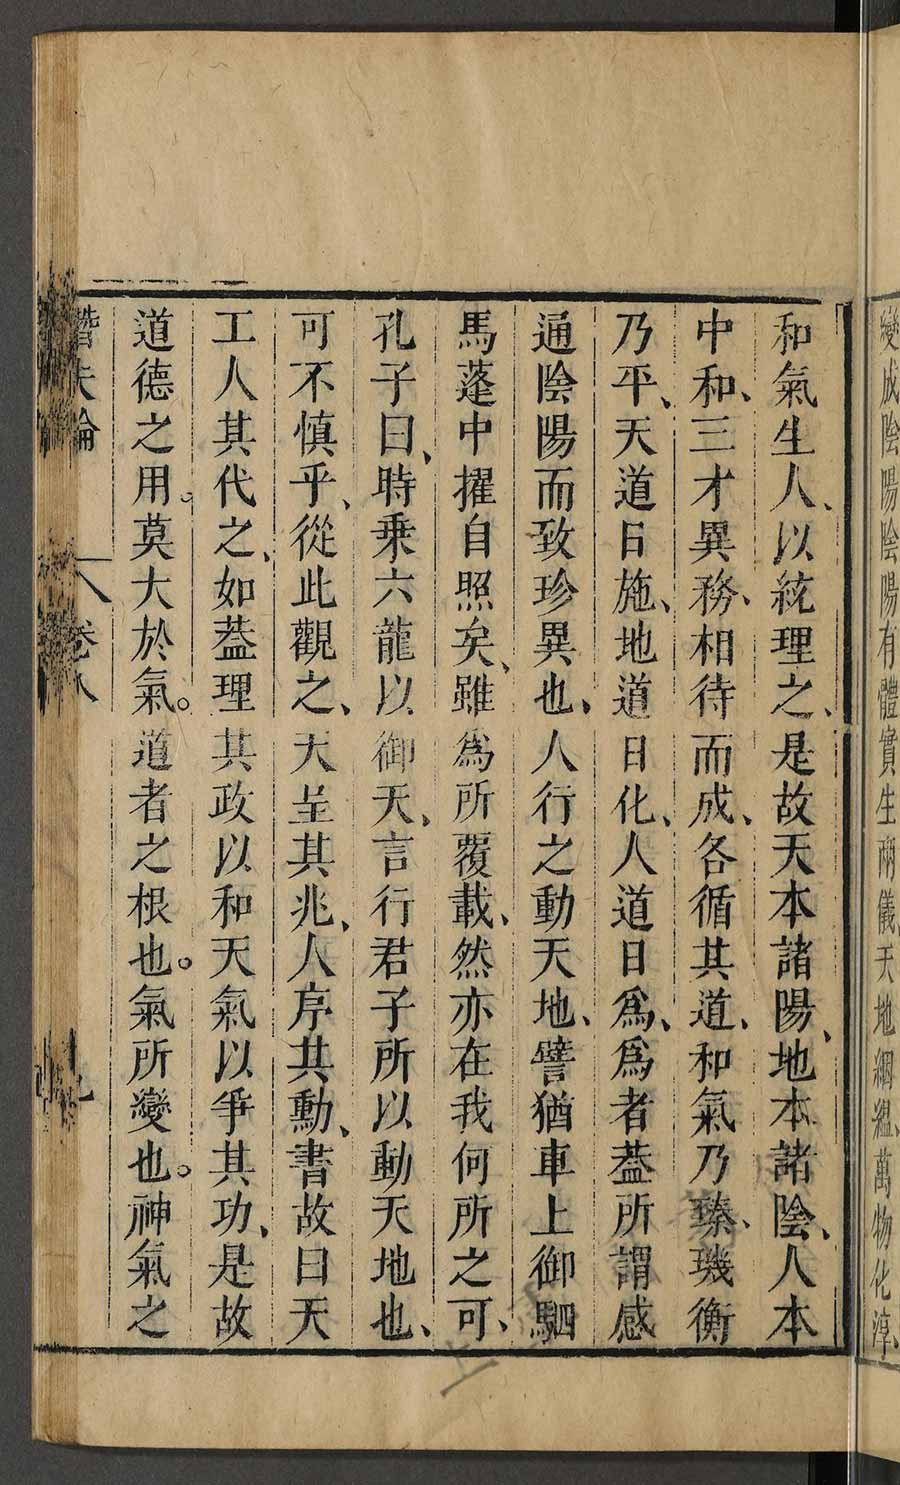 變成陰陽陰陽有體實生兩儀天地絪緼、萬物化淳、
和氣生人、以統理之、是故天本諸陽、地本諸陰、人本
中和、三才異務、相待而成、各循其道、和氣乃臻、璣衡
乃平、天道日施、地道日化、人道日為、為者葢所謂感
通陰陽而致珍異也、人行之動天地、譬猶車上御駟
馬蓬中擢自照矣、雖為所覆載、然亦在我何所之可、
孔子曰、時乘六龍以御天、言行君子所以動天地也、
可不慎乎、從此觀之、天呈其兆、人序其勳、書故曰天
工人其代之、如葢理其政以和天氣以爭其功、是故
道德之用。莫大於氣。道者之根也。氣所變也。神氣之
潛夫論 卷八 九